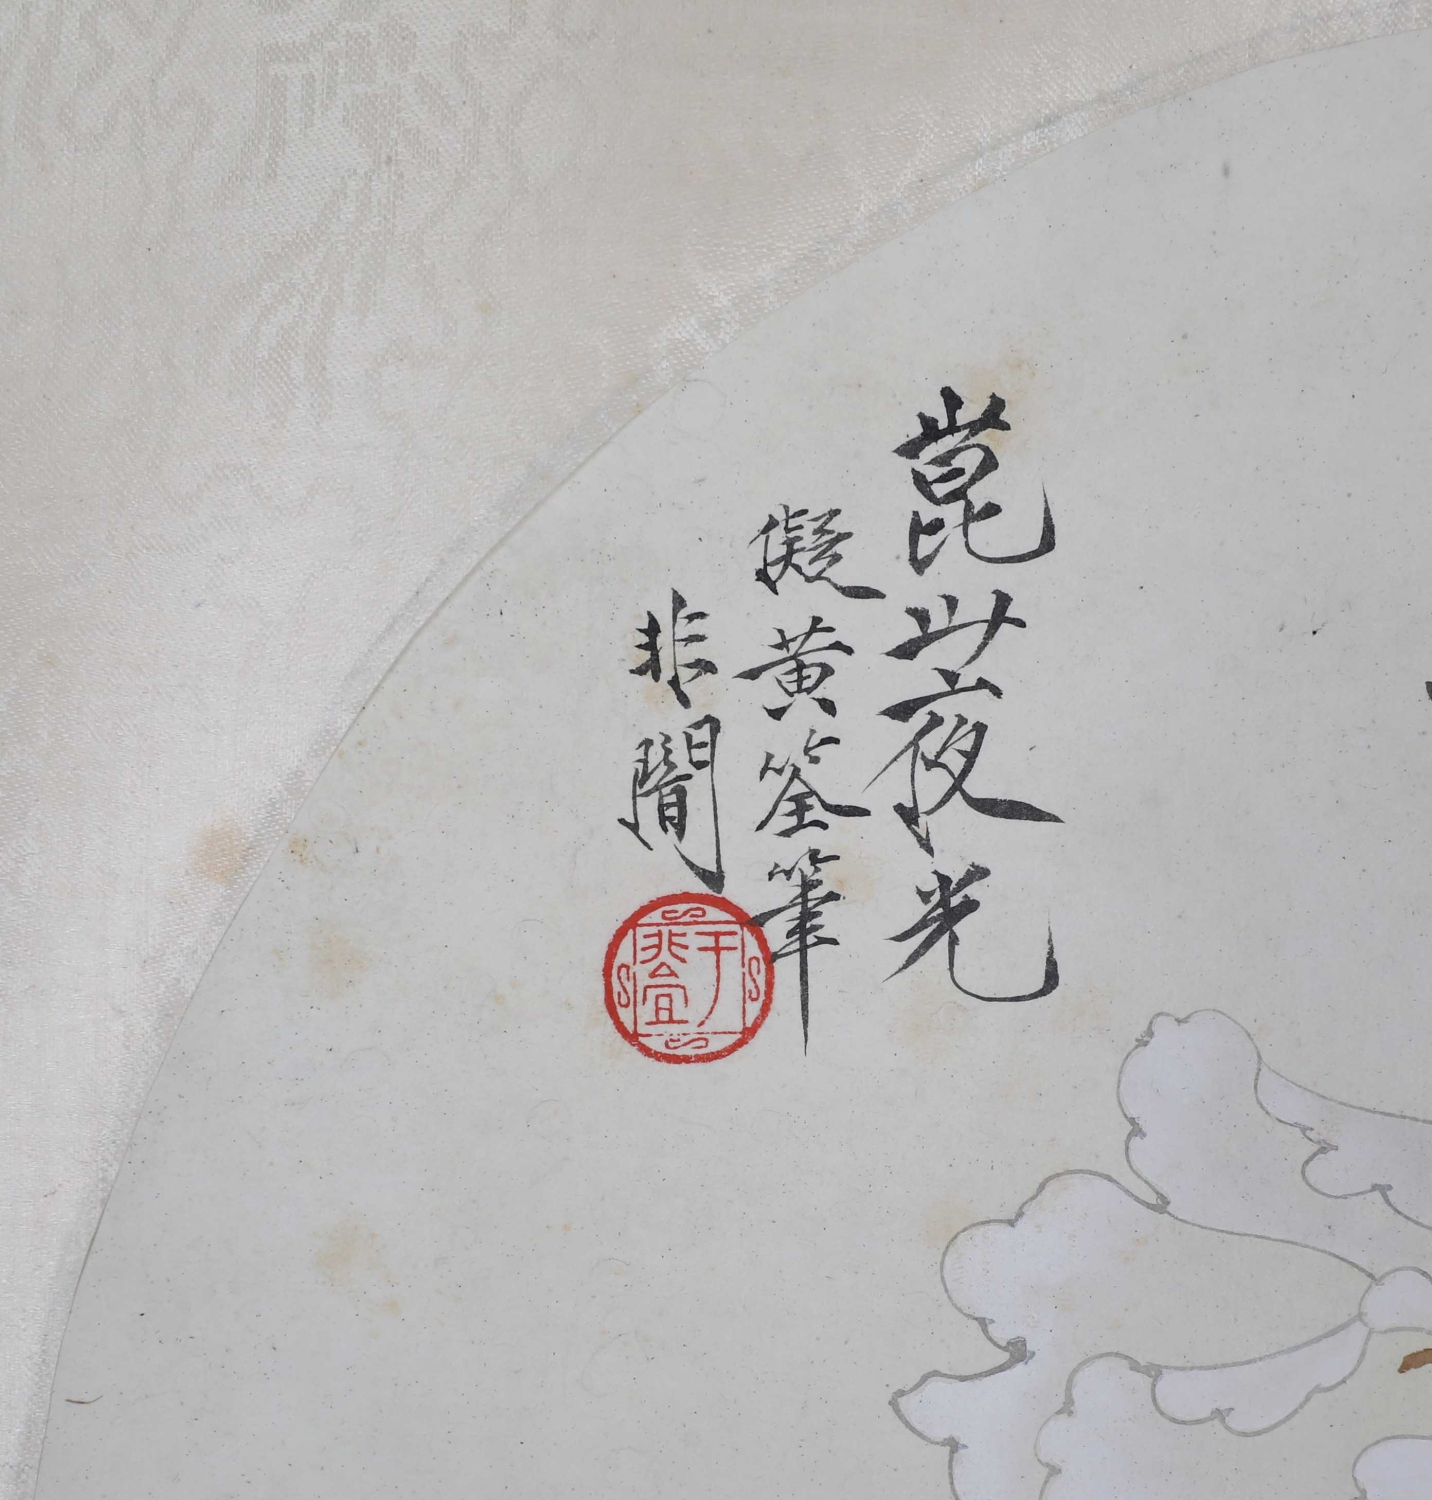 崑山夜光
儗黃筌筆
非闇
于非盦